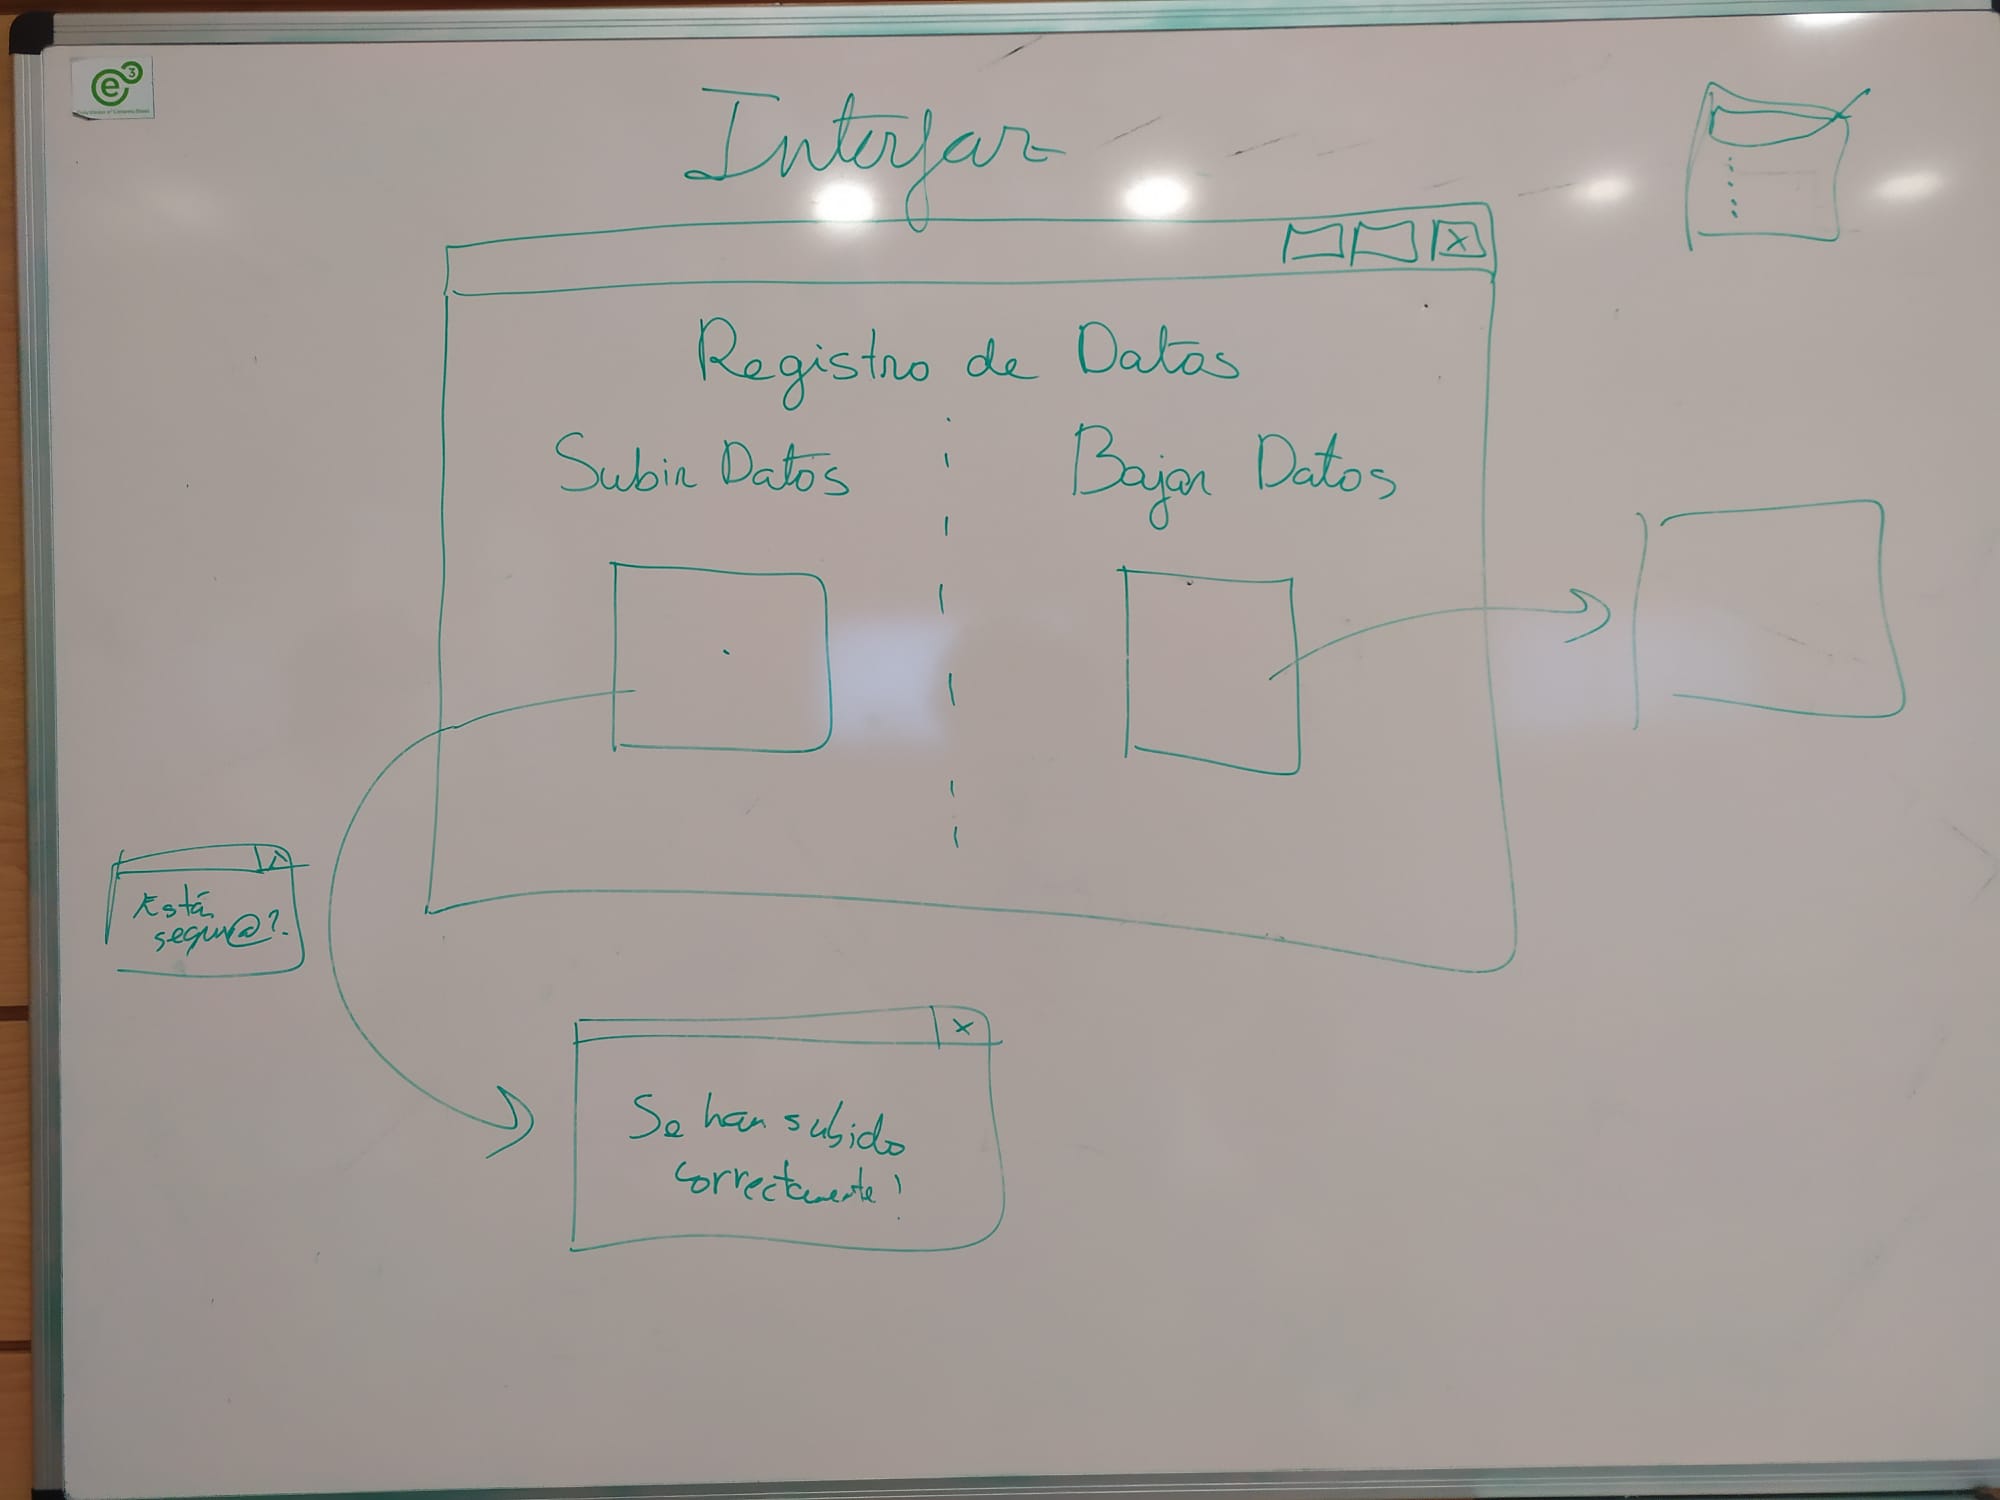 e3
Interfaz
X
Registro de Datos
Subir Datos
Bajar Datos
Está
segur@?
X
Se han subido
correctamente!